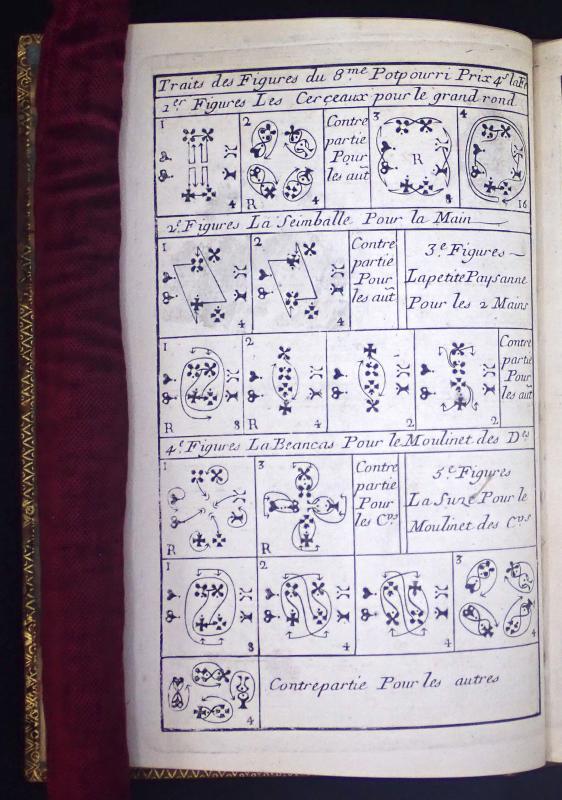 Traits des Figures du 8.me Potpourri Prix 4s la Fe
1.er Figures Les Cerçeaux pour le grand rond
1
4
2
R
4
Contre
partie
Pour
les aut
3
R
8
4
16
2.e Figures La Seimballe Pour la Main
1
4
2
4
Contre
partie
Pour
les aut
3.e Figures
La petite Paysanne
Pour les 2 Mains
1
R
8
2
R
4
1
2
2
2
Contre
partie
Pour
les aut
4.e Figures La Brancas Pour le Moulinet des D.es
1
R
3
R
Contre
partie
Pour
les C.vs
5.e Figures
La Suze Pour le
Moulinet des C.vs
1
8
2
4
4
3
4
4
Contrepartie Pour les autres